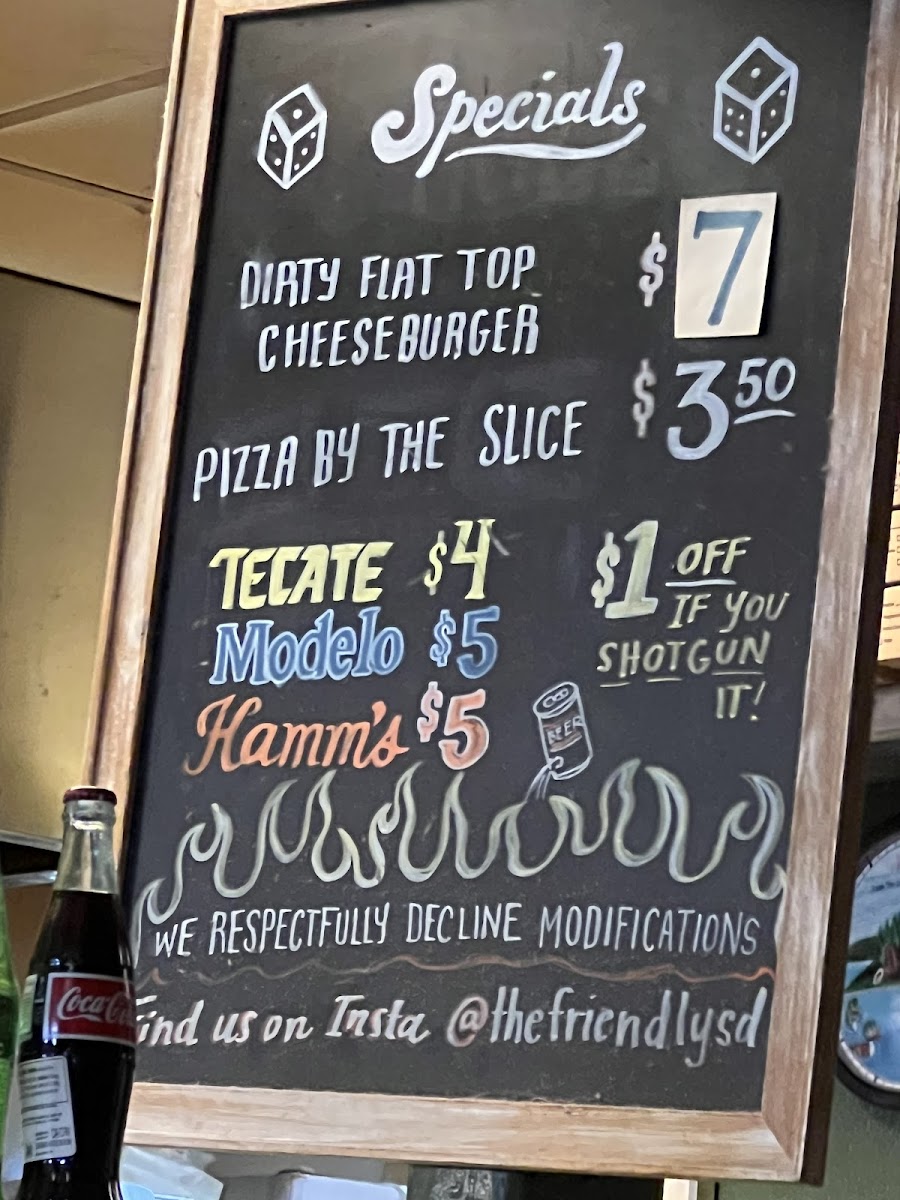 Specials
DIRTY FLAT TOP
CHEESEBURGER
$7
PIZZA BY THE SLICE
$3 50
TECATE $4
Modelo $5
Hamm's $5
$1 OFF
IF YOU
SHOTGUN
IT!
BEER
WE RESPECTFULLY DECLINE MODIFICATIONS
Find us on Insta @thefriendlysd
Coca-Co